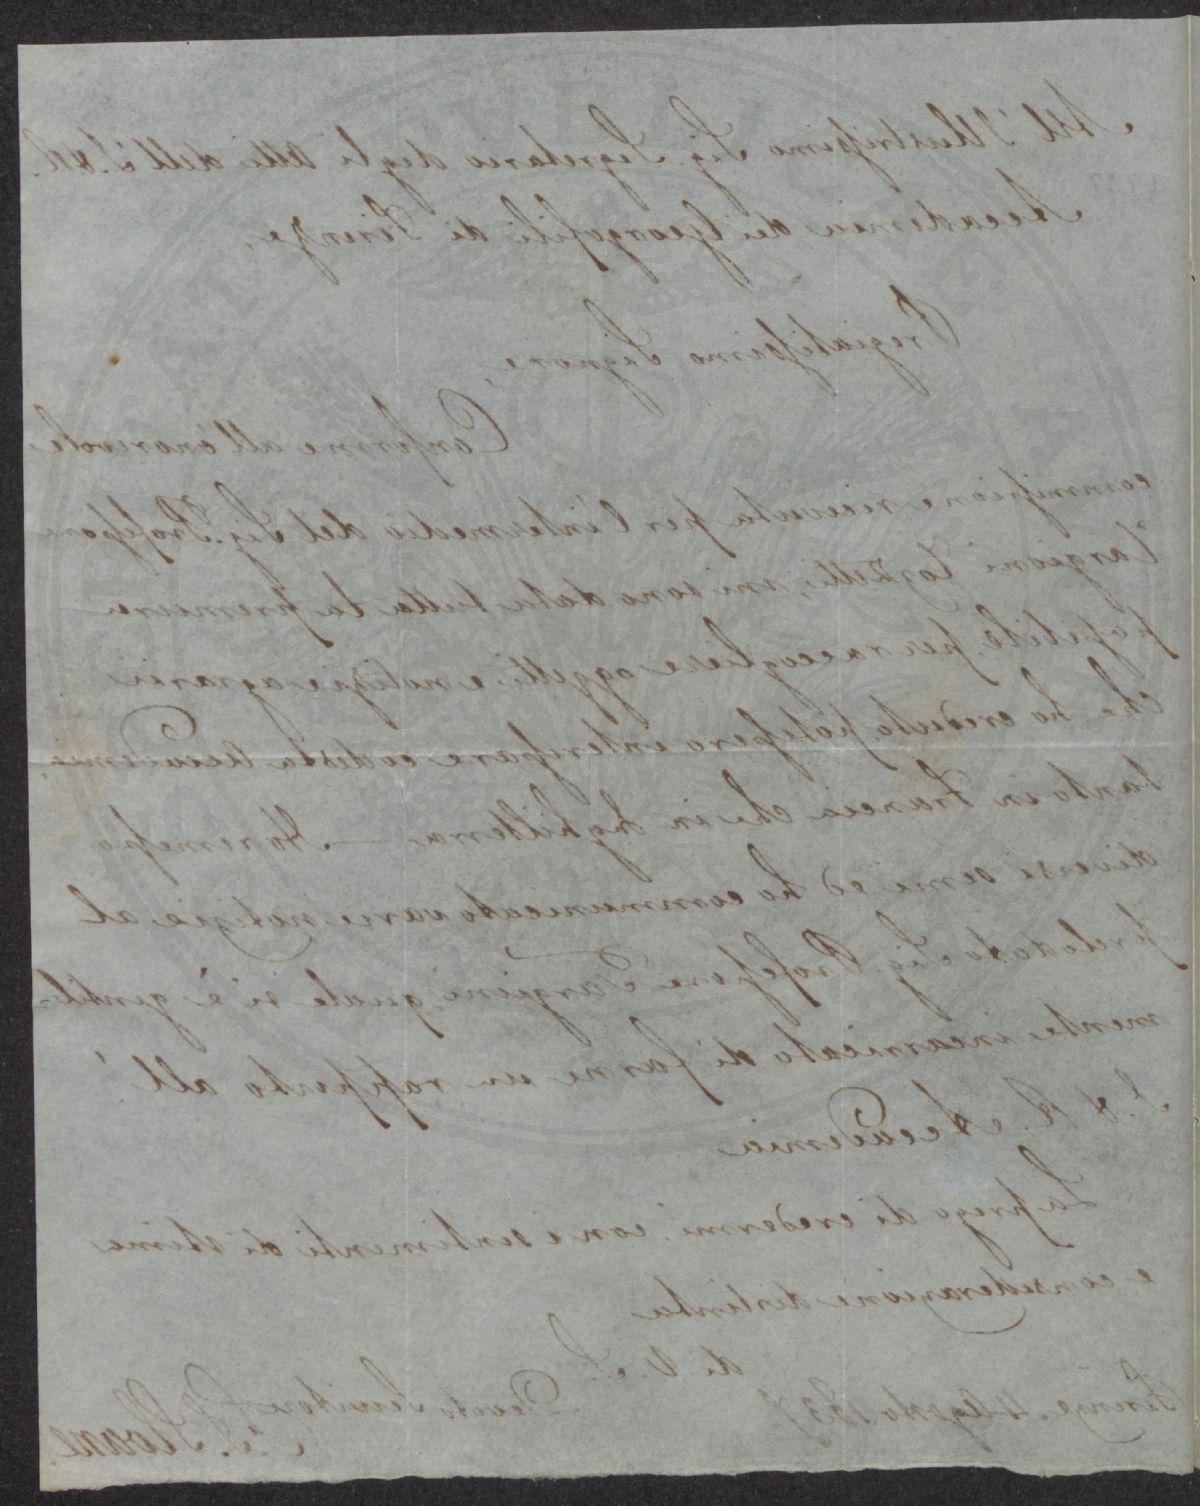 All'Illustrissimo Sig. Segretario degli Atti dell'I. & R.
Accademia dei Georgofili di Firenze,
Pregiatissimo Signore,
Conforme all'onorevole
commissione ricevuta per l'intermedio del Sig. Professore
Targioni Tozzetti, mi sono data tutta la premura
possibile per raccogliere oggetti e notizie agrarie
che ho creduto potessero interessare codesta Accademia,
tanto in Francia che in Inghilterra — Ho rimesso
diversi semi ed ho communicato varie notizie al
prelodato Sig. Professore Targioni, quale si è gentil-
mente incarricato di farne un rapporto all'
I. & R. Accademia
La prego di credermi, con i sentimenti di stima
e considerazione distinta
di V. S.
Firenze, 4 Agosto 1837
Devoto Servitore
F. Sloane